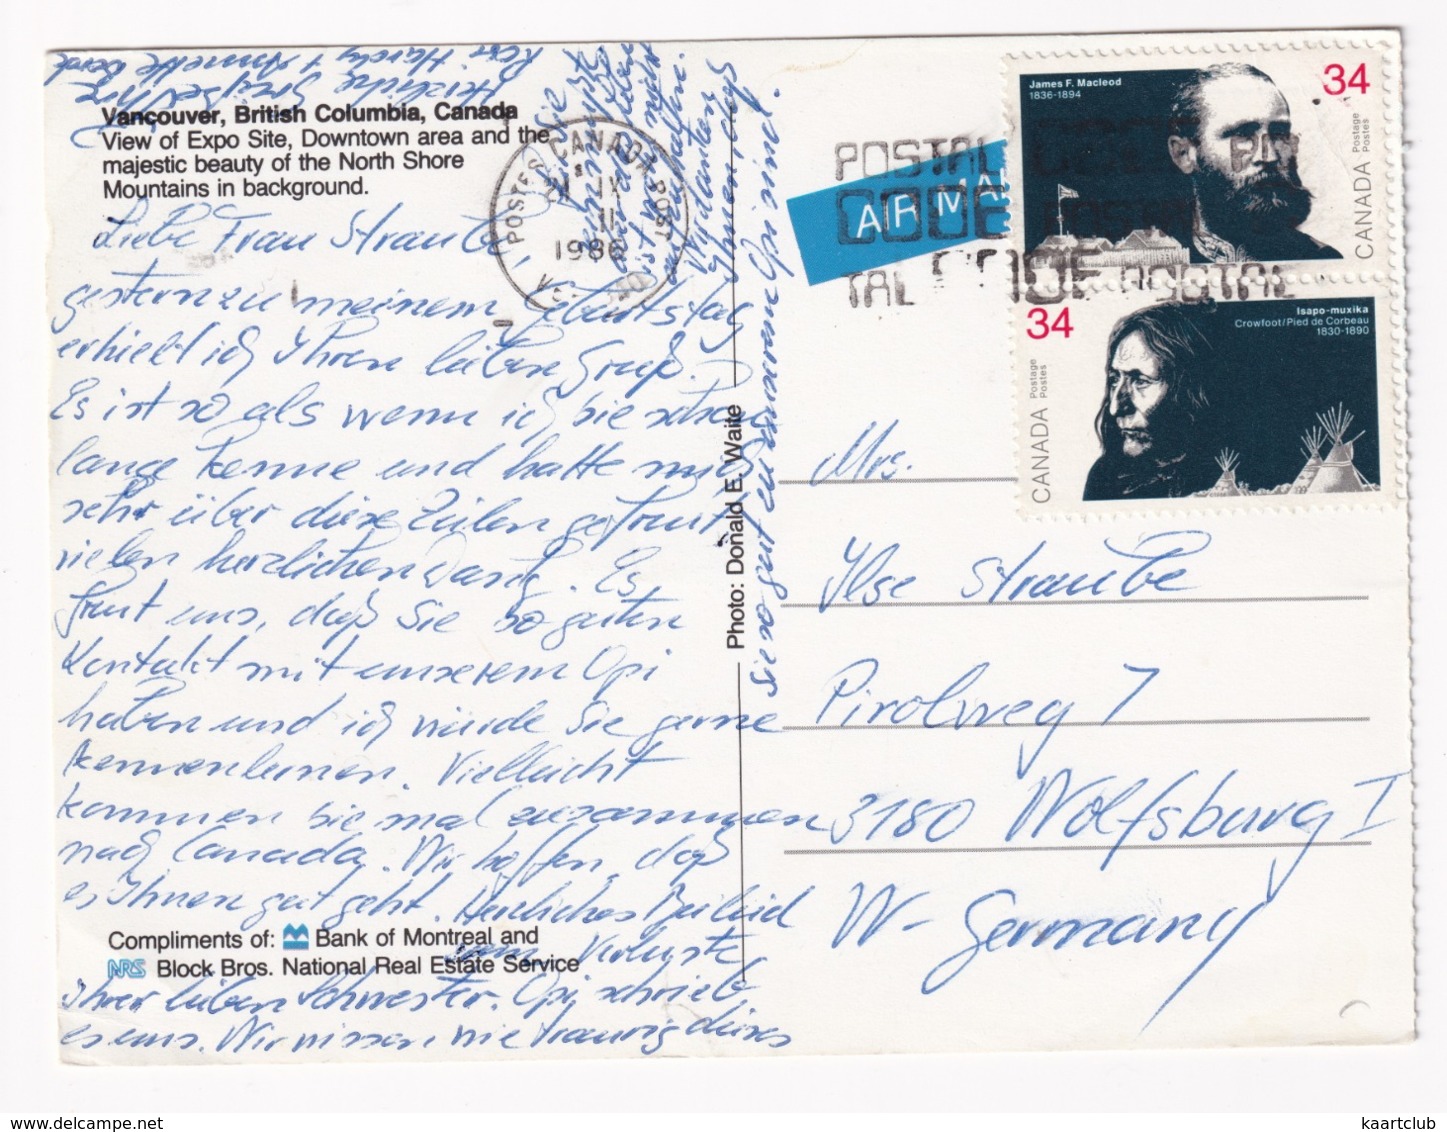 Vancouver, British Columbia, Canada
View of Expo Site, Downtown area and the
majestic beauty of the North Shore
Mountains in background.
Liebe Frau Straube
gestern zu meinem Geburtstag
erhielt ich Ihren lieben Gruß.
Es ist so als wenn ich Sie schon
lange kenne und hatte mich
sehr über diese Zeilen gefreut
vielen herzlichen Dank. Es
freut uns, daß Sie so guten
Kontakt mit unserem Opi
haben und ich würde Sie gerne
kennenlernen. Vielleicht
kommen Sie mal zusammen
nach Canada. Wir hoffen, daß
es Ihnen gut geht. Herzliches Beileid
zum Verluste
Ihrer lieben Schwester. Opi schrieb
es uns. Wir wissen wie traurig dieses
ist
Wir danken
Ihnen daß
Sie so gut zu unserem Opi sind.
Herzliche Grüße Ihre
Hardy + Annette
Compliments of: Bank of Montreal and
NRS Block Bros. National Real Estate Service
Photo: Donald E. Waite
POSTES CANADA POST
IX
11
1986
AIR MA
POSTAL
CODE
TAL CODE POSTAL
James F. Macleod
1836-1894
34
Postage
Postes
CANADA
Isapo-muxika
Crowfoot/Pied de Corbeau
1830-1890
34
Postage
Postes
CANADA
Mrs.
Ilse Straube
Pirolweg 7
3180 Wolfsburg 1
W-Germany
www.delcampe.net
kaartclub